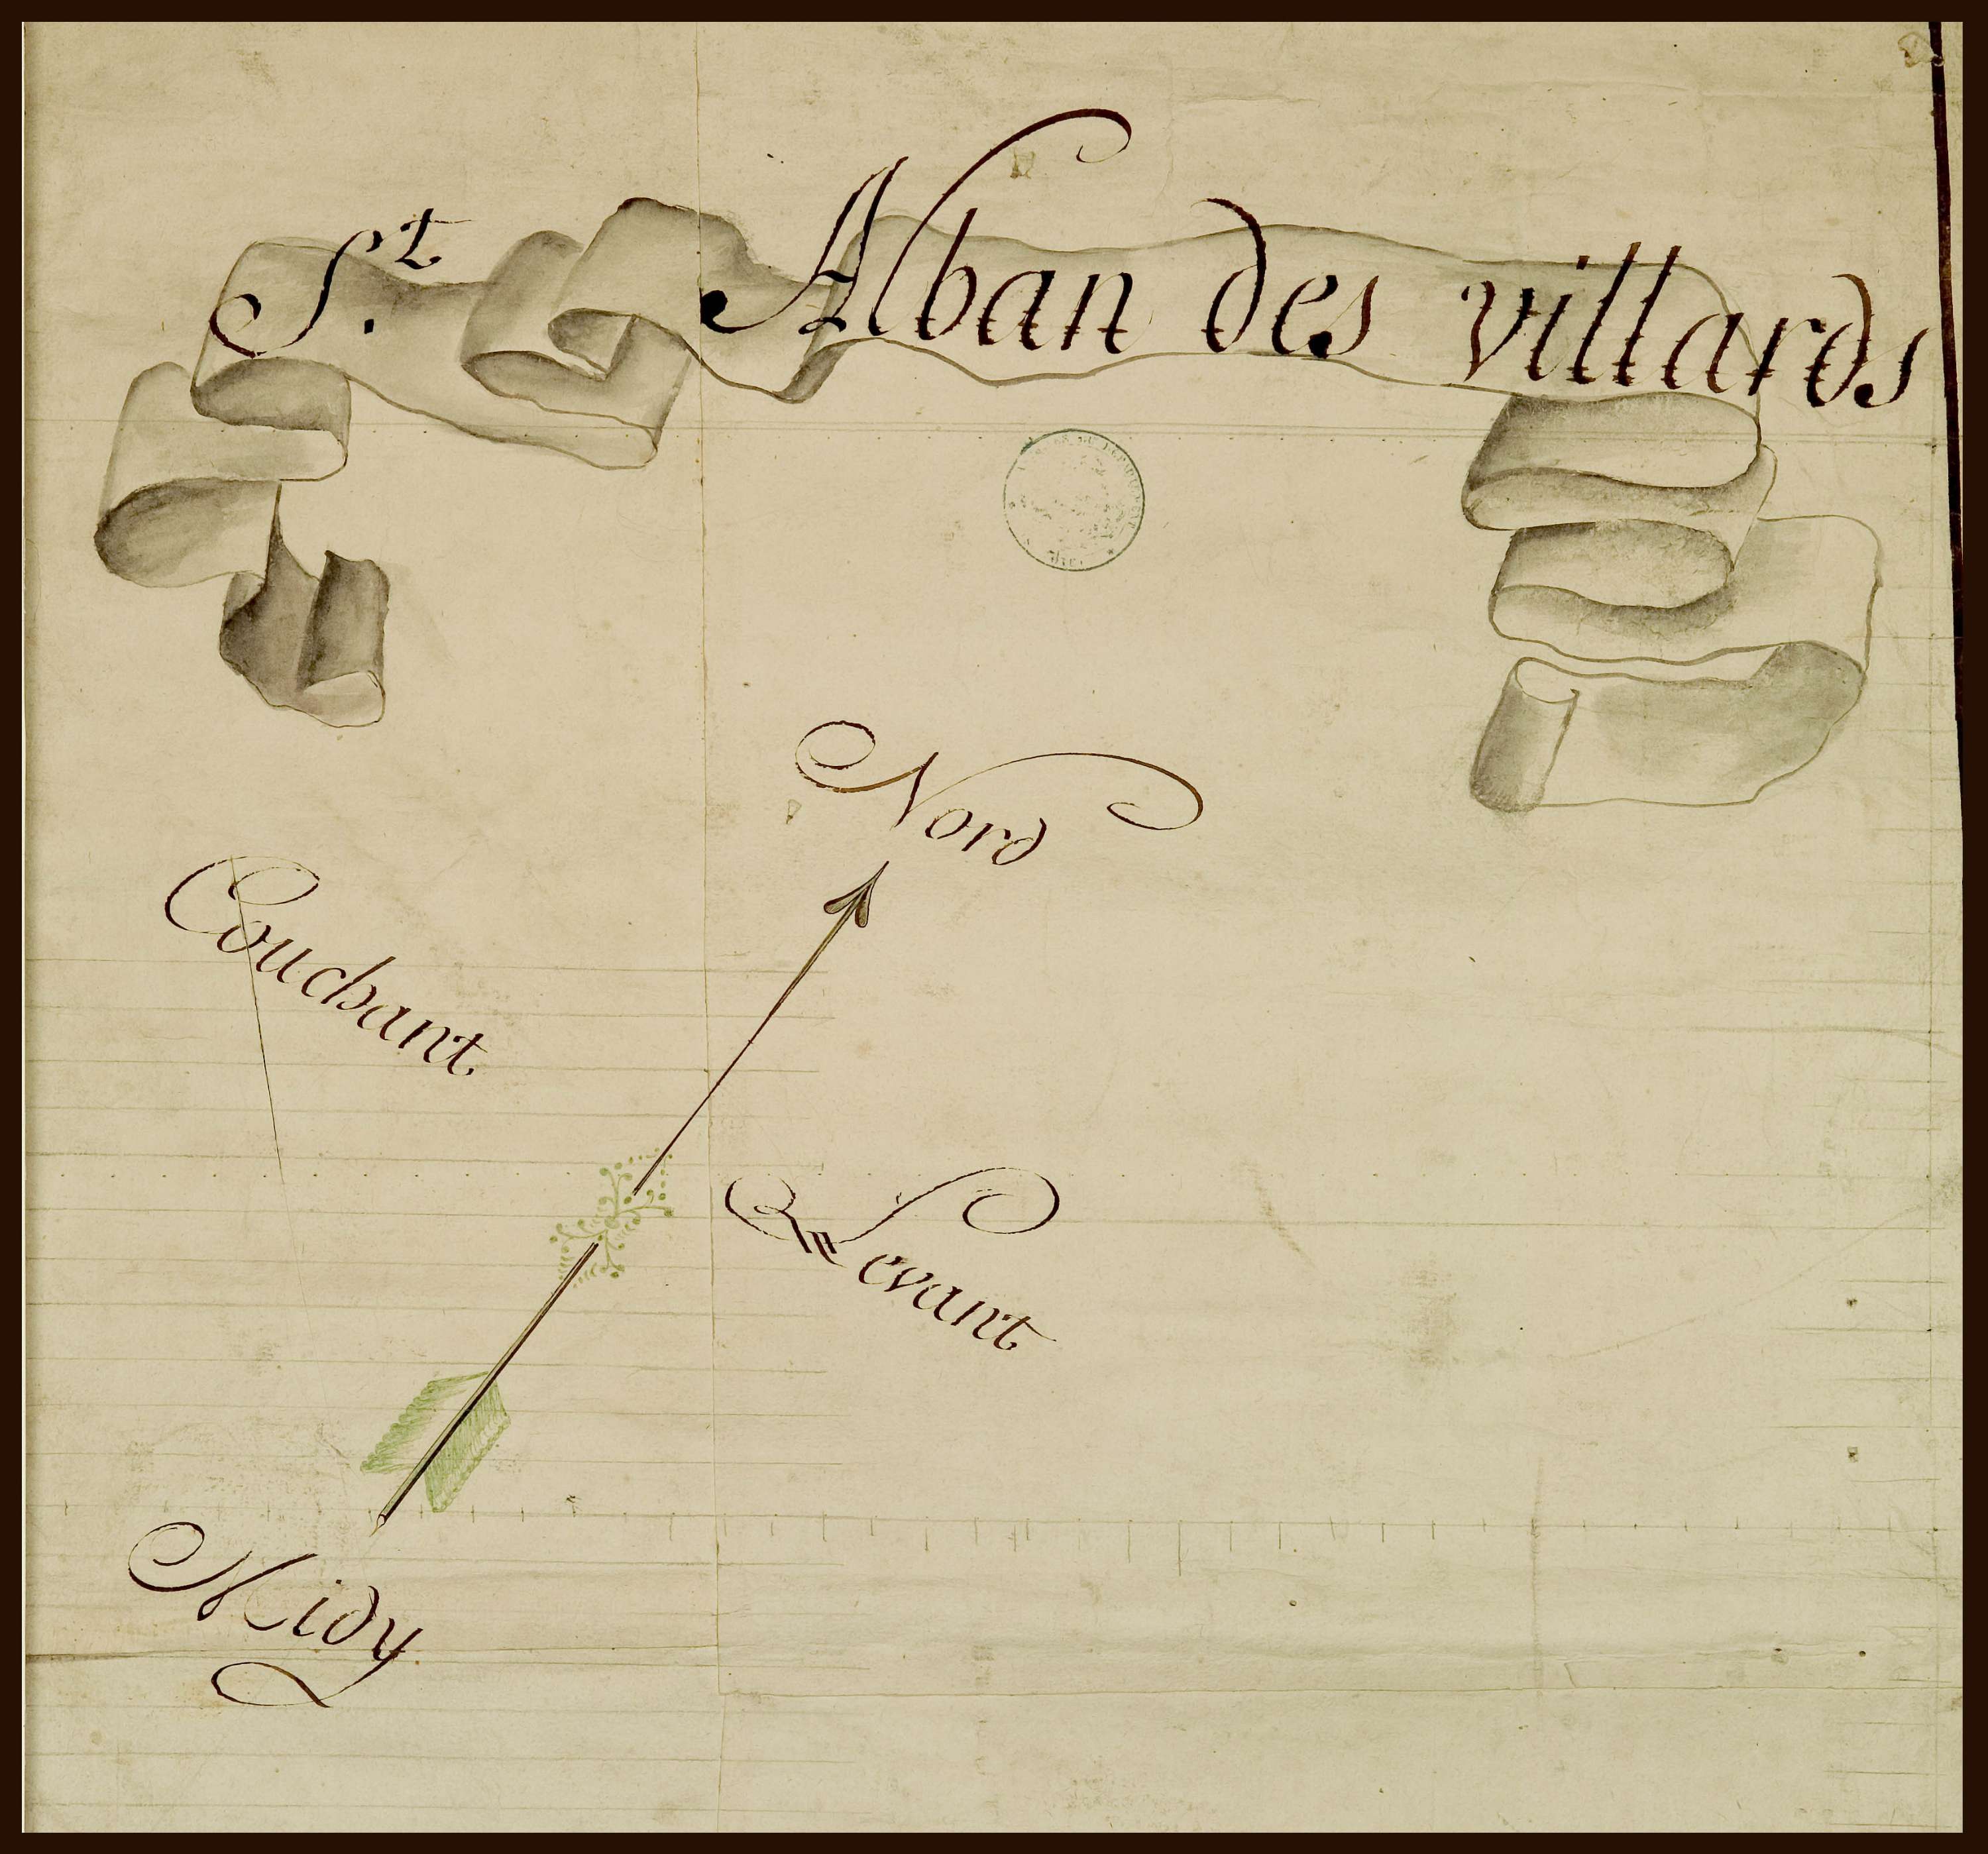 St. Alban des villards
Nord
Couchant
Levant
Midy